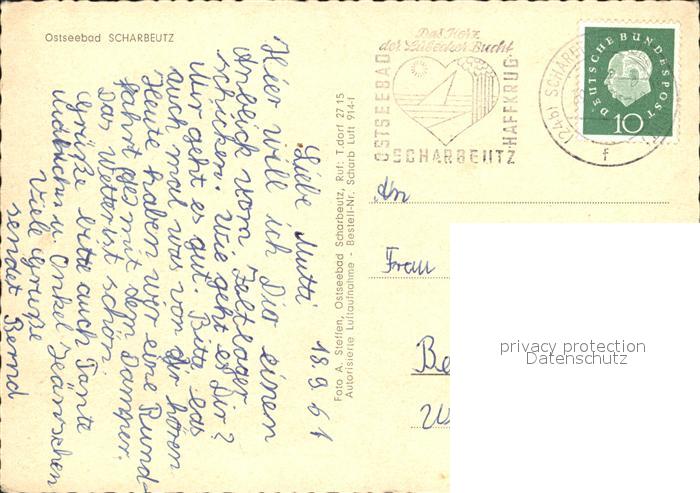 Ostseebad SCHARBEUTZ
Liebe Mutti 18.9.61
Hier will ich Dir einen
Anblick vom Zeltlager
schicken. Wie geht es Dir?
Mir geht es gut. Bitte las
auch mal was von dir hören
Heute haben wir eine Rund-
fahrt gemit dem Damper.
Das Wetter ist schön.
Grüße bitte auch Tante
u Onkel
Viele Grüße
sendet Bernd
Foto A. Steffen, Ostseebad Scharbeutz, Ruf: T.dorf 27 15
Autorisierte Luftaufnahme - Bestell-Nr. Scharb Luft 914-f
Das Herz
der Lübecker Bucht
OSTSEEBAD
HAFFKRUG
SCHARBEUTZ
(24b) SCHARB
f
DEUTSCHE BUNDESPOST
10
An
Frau
Be
W
privacy protection
Datenschutz